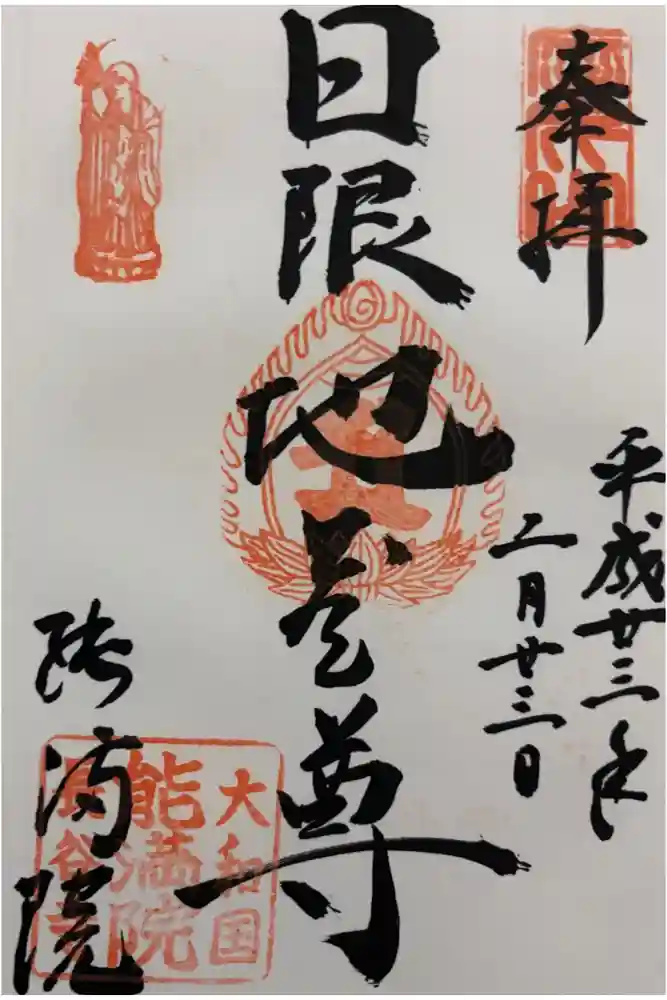 奉拝
平成廿三年
二月廿三日
日限地蔵尊
能満院
大和国
能満院
長谷寺